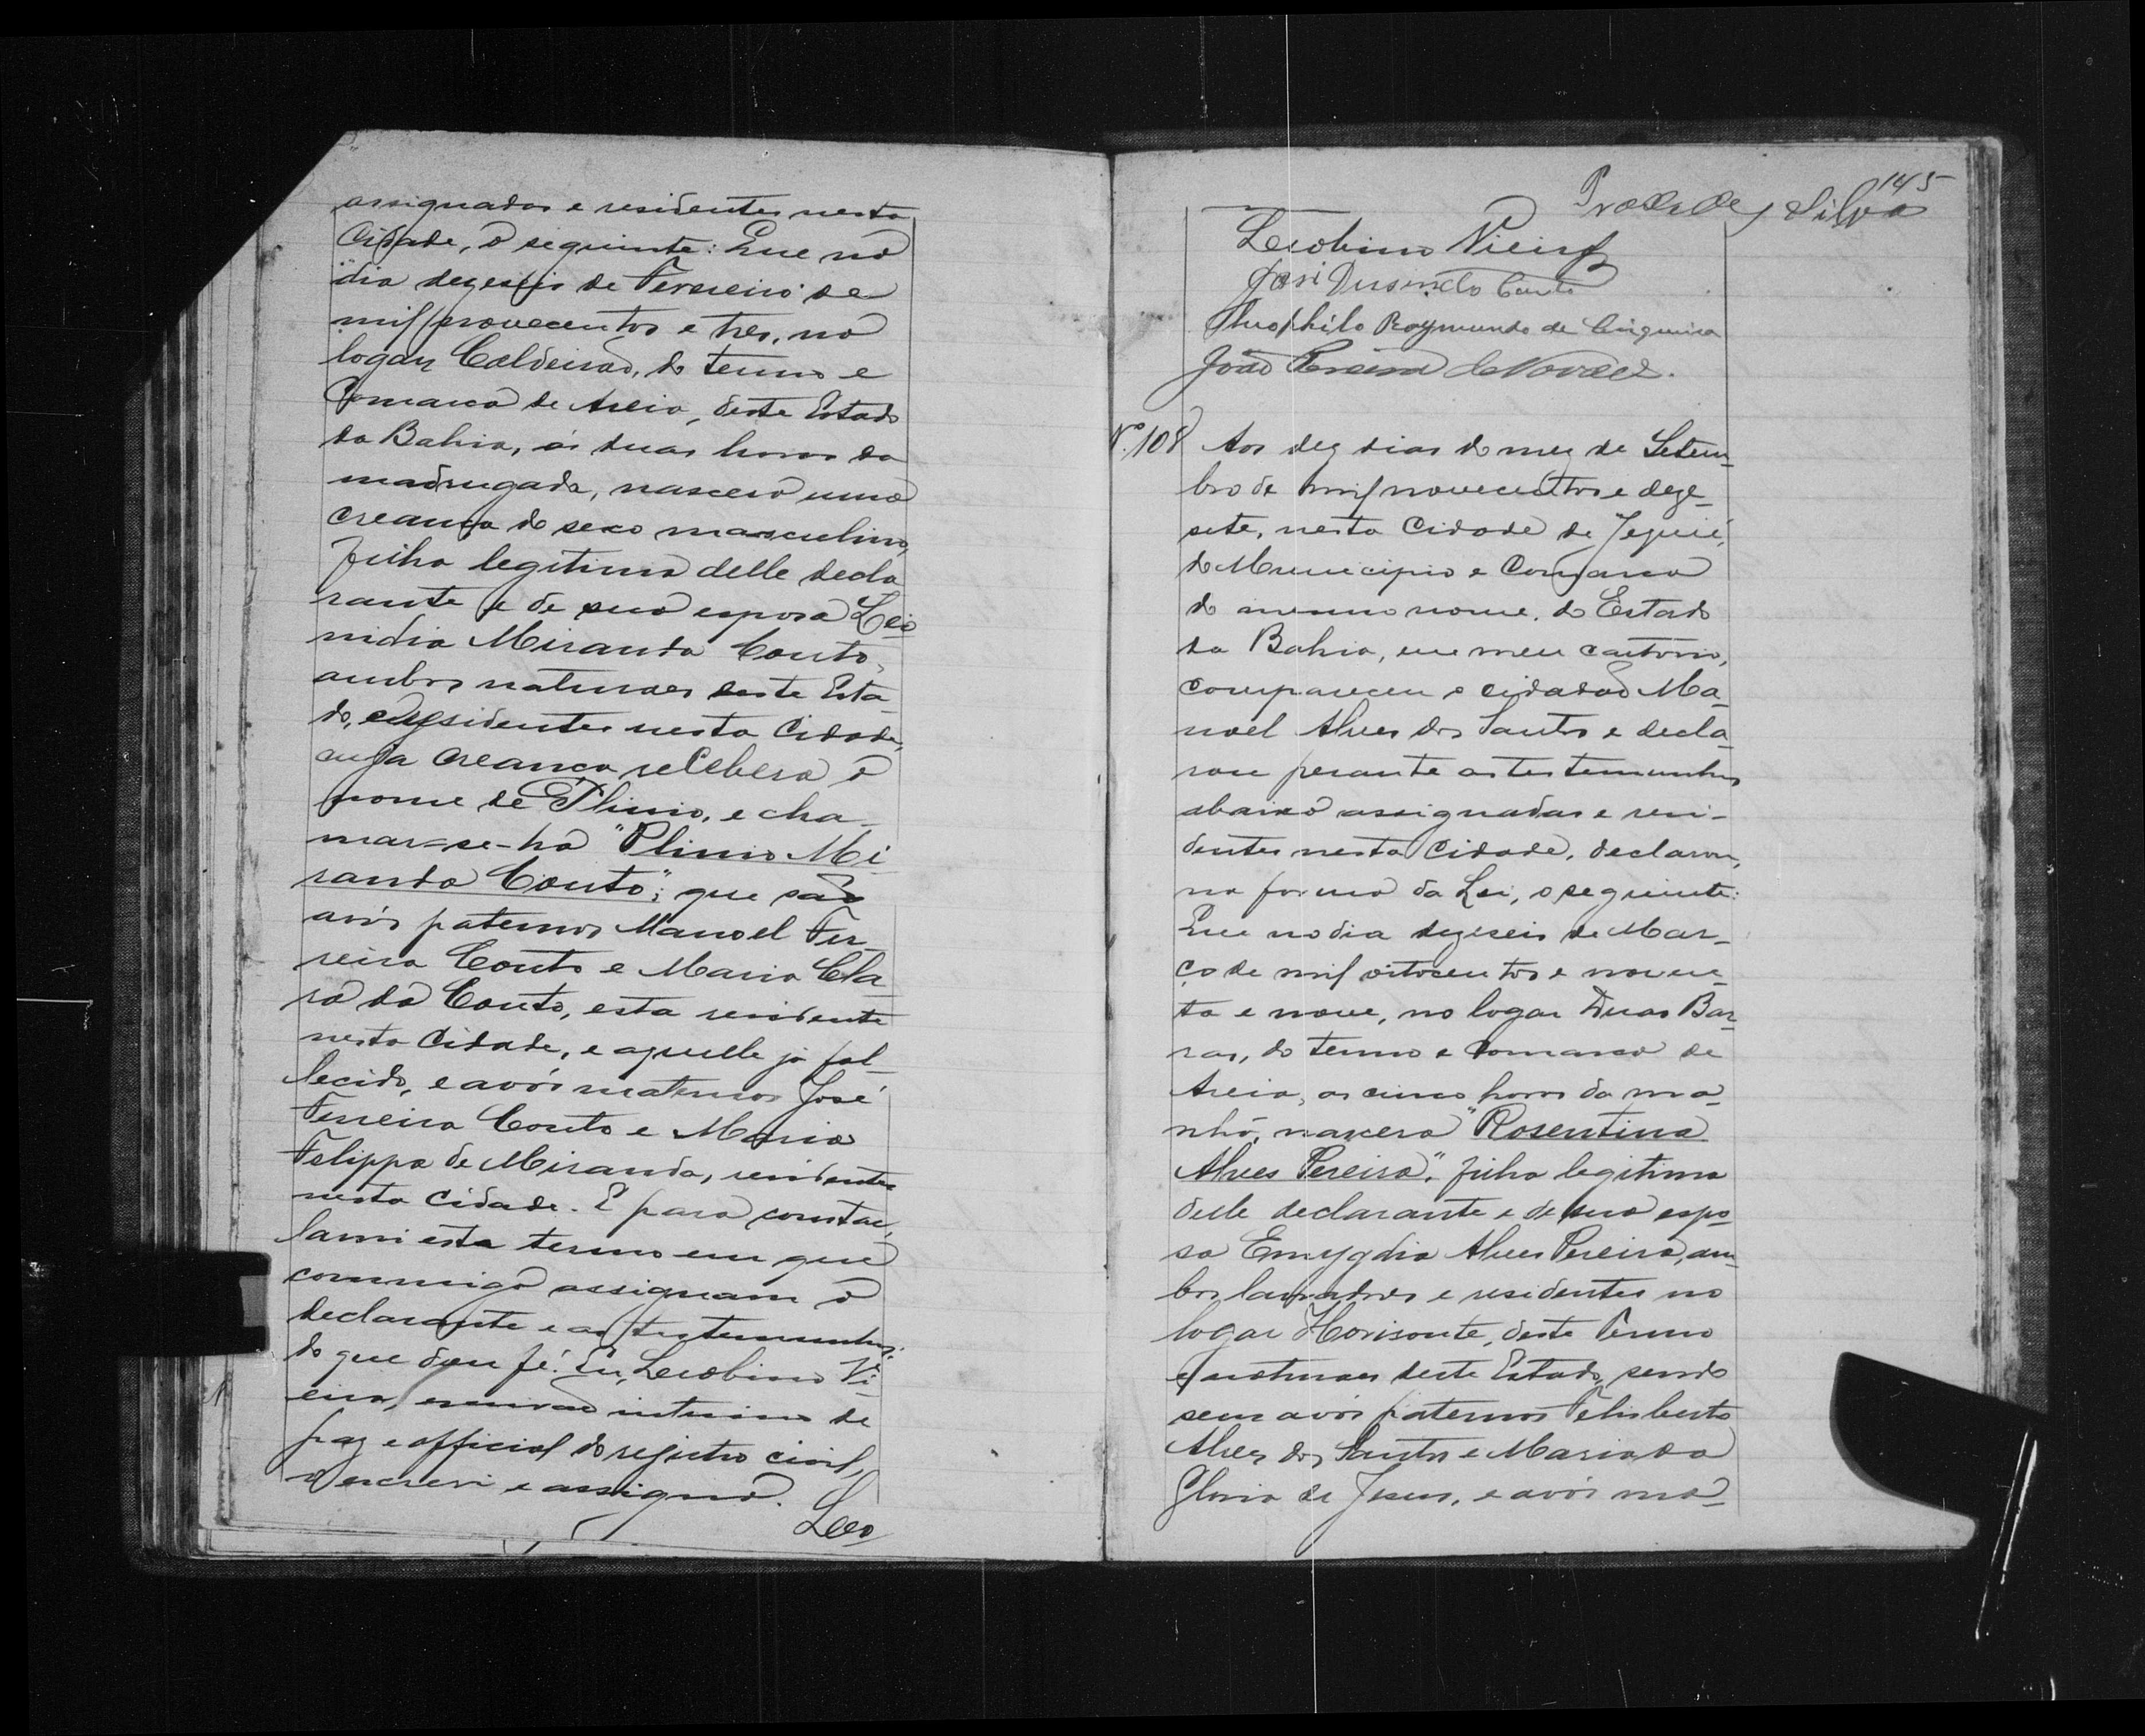 assignados e residentes nesta
Cidade, o seguinte: Que no
dia dezeseis de Fevereiro de
mil novecentos e tres, no
logar Caldeirão, do termo e
Comarca de Areia, deste Estado
da Bahia, ás duas horas da
madrugada, nascera uma
creança do sexo masculino,
filha legitima delle decla
rante e de sua esposa Leo
nidia Miranda Couto,
ambos naturaes deste Esta-
do, e residentes nesta Cidade,
cuja creança recebera o
nome de Plinio, e cha-
mar-se-ha "Plinio Mi-
randa Couto"; que são
avós paternos Manoel Fer-
reira Couto e Maria Cla
ra do Couto, esta residente
nesta Cidade, e aquelle já fal-
lecido, e avós maternos José
Ferreira Couto e Maria
Felippa de Miranda, residentes
nesta Cidade. E para constar,
lavrei este termo em que
commigo assignam o
declarante e as testemunhas;
do que dou fé. Eu, Leobino Vi-
eira, escrivão interino de
paz e official do registro civil,
o escrevi e assigno.
Leo
145
Silva
Leobino Vieira
José Couto
Theophilo Raymundo de Cirqueira
João Pereira de Novaes.
Nº. 108 Aos dez dias do mez de Setem-
bro de mil novecentos e deze-
sete, nesta Cidade de Jequié,
do Municipio e Comarca
do mesmo nome, do Estado
da Bahia, em meu cartorio,
compareceu o cidadão Ma-
noel Alves dos Santos e decla-
rou perante as testemunhas
abaixo assignadas e resi-
dentes nesta Cidade, declarou,
na forma da Lei, o seguinte:
Que no dia dezeseis de Mar-
ço de mil oitocentos e noven-
ta e nove, no logar Duas Bar-
ras, do termo e Comarca de
Areia, as cinco horas da ma-
nhã, nascera "Rosentina
Alves Pereira", filha legitima
delle declarante e de sua espo-
sa Emygdia Alves Pereira, am-
bos lavradores e residentes no
logar Horisonte, deste Termo
e naturaes deste Estado, sendo
seus avós paternos Felisberto
Alves dos Santos e Maria da
Gloria de Jesus, e avós ma-